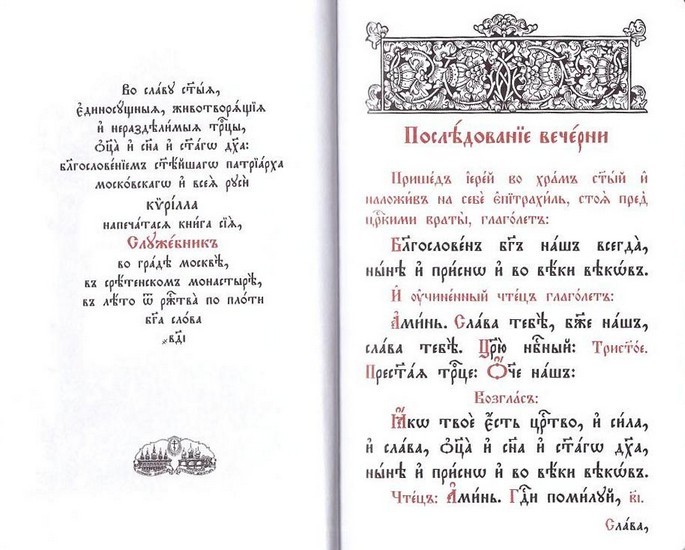 Во сла́ву ст҃ы́ѧ,
є҆диносꙋ́щныѧ, животворѧ́щїѧ
и҆ нераздѣли́мыѧ трⷪ҇цы,
ѻ҆ц҃а̀ и҆ сн҃а и҆ ст҃а́гѡ дх҃а:
бл҃гослове́нїемъ ст҃ѣ́йшагѡ патрїа́рха
моско́вскагѡ и҆ всеѧ̀ рꙋсѝ
кѷрі́лла
напеча́тасѧ кни́га сїѧ̀,
Слꙋже́бникъ
во гра́дѣ москвѣ̀,
въ срѣ́тенскомъ монастырѣ̀,
въ лѣ́то ѿ ржⷭ҇тва̀ по пло́ти
бг҃а сло́ва
҂вд҃і
Послѣ́дованїе вече́рни
Прише́дъ і҆ере́й во хра́мъ ст҃ы́й и҆
наложи́въ на себѐ є҆пїтрахи́ль, стоѧ̀ пред̾
црⷭ҇кими враты̀, глаго́летъ:
Бл҃гослове́нъ бг҃ъ на́шъ всегда̀,
ны́нѣ и҆ при́снѡ и҆ во вѣ́ки вѣкѡ́въ.
И҆ ᲂу҆чине́нный чте́цъ глаго́летъ:
А҆ми́нь. Сла́ва тебѣ̀, бж҃е на́шъ,
сла́ва тебѣ̀. Цр҃ю̀ нбⷭ҇ный: Трист҃о́е.
Прест҃а́ѧ трⷪ҇це: Ѻ҆́ч҃е на́шъ:
Возгла́съ:
Ꙗ҆́кѡ твоѐ є҆́сть црⷭ҇тво, и҆ си́ла,
и҆ сла́ва, ѻ҆ц҃а̀ и҆ сн҃а и҆ ст҃а́гѡ дх҃а,
ны́нѣ и҆ при́снѡ и҆ во вѣ́ки вѣкѡ́въ.
Чте́цъ: А҆ми́нь. Гдⷭ҇и поми́лꙋй, в҃і.
Сла́ва,